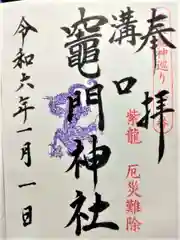 奉拝
神巡り
厄災難除
紫龍
溝口
竈門神社
令和六年一月一日